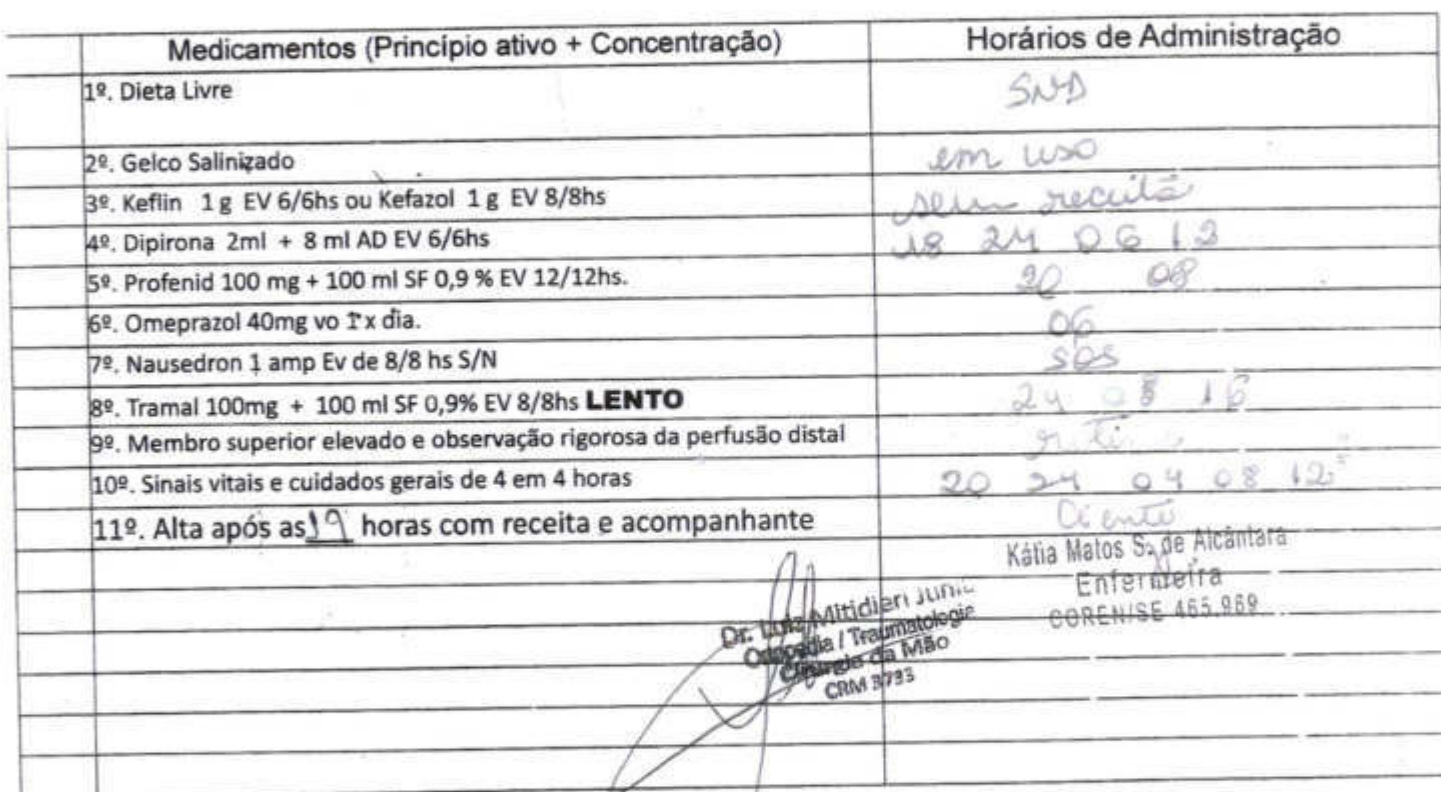 Medicamentos (Princípio ativo + Concentração) Horários de Administração
1º. Dieta Livre SND
2º. Gelco Salinizado em uso
3º. Keflin 1 g EV 6/6hs ou Kefazol 1 g EV 8/8hs sem receita
4º. Dipirona 2ml + 8 ml AD EV 6/6hs 18 24 06 12
5º. Profenid 100 mg + 100 ml SF 0,9 % EV 12/12hs. 20 08
6º. Omeprazol 40mg vo 1 x dia. 06
7º. Nausedron 1 amp Ev de 8/8 hs S/N SOS
8º. Tramal 100mg + 100 ml SF 0,9% EV 8/8hs LENTO 24 08 16
9º. Membro superior elevado e observação rigorosa da perfusão distal
10º. Sinais vitais e cuidados gerais de 4 em 4 horas 20 24 04 08 12
11º. Alta após as 19 horas com receita e acompanhante Ciente
Kátia Matos S. de Alcântara
Enfermeira
COREN/SE 465.969
Dr. Luiz Mitidieri
Ortopedia / Traumatologia
Cirurgia da Mão
CRM 3793